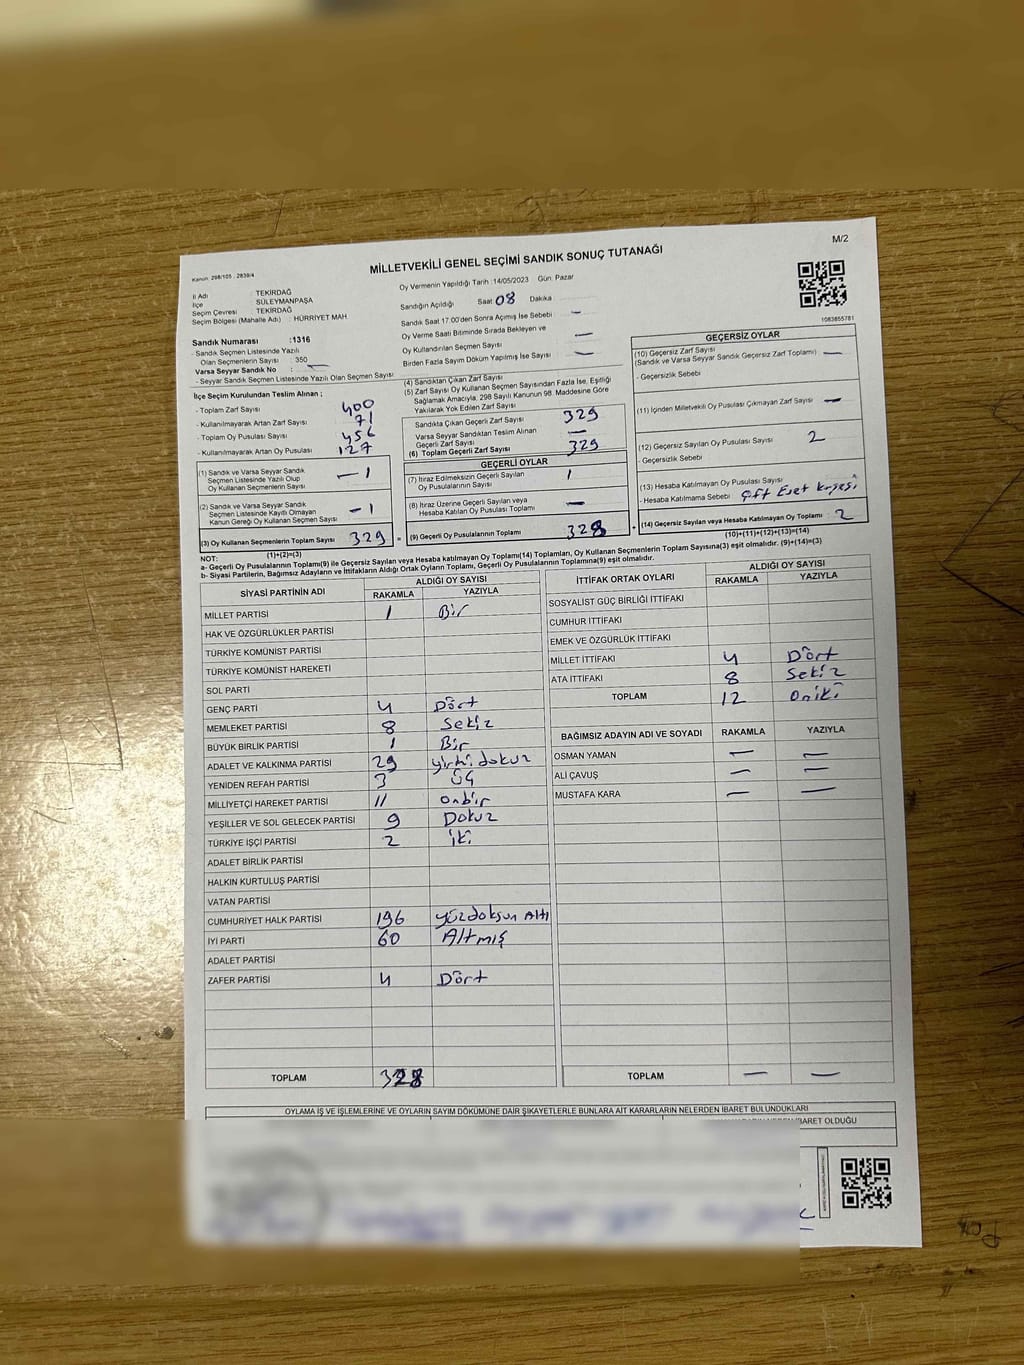 M/2
Kanun: 298/105 , 2839/4
MİLLETVEKİLİ GENEL SEÇİMİ SANDIK SONUÇ TUTANAĞI
İl Adı TEKİRDAĞ
İlçe SÜLEYMANPAŞA
Seçim Çevresi TEKİRDAĞ
Seçim Bölgesi (Mahalle Adı) : HÜRRİYET MAH
Sandık Numarası :1316
- Sandık Seçmen Listesinde Yazılı
Olan Seçmenlerin Sayısı : 350
Varsa Seyyar Sandık No : —
- Seyyar Sandık Seçmen Listesinde Yazılı Olan Seçmen Sayısı
Oy Vermenin Yapıldığı Tarih :14/05/2023 Gün: Pazar
Sandığın Açıldığı Saat 08 Dakika
Sandık Saat 17:00'den Sonra Açılmış İse Sebebi —
Oy Verme Saati Bitiminde Sırada Bekleyen ve
Oy Kullandırılan Seçmen Sayısı —
Birden Fazla Sayım Döküm Yapılmış İse Sayısı —
1083655781
İlçe Seçim Kurulundan Teslim Alınan ;
- Toplam Zarf Sayısı 400
- Kullanılmayarak Artan Zarf Sayısı 71
- Toplam Oy Pusulası Sayısı 456
- Kullanılmayarak Artan Oy Pusulası 127
(1) Sandık ve Varsa Seyyar Sandık
Seçmen Listesinde Yazılı Olup
Oy Kullanan Seçmenlerin Sayısı — 1
(2) Sandık ve Varsa Seyyar Sandık
Seçmen Listesinde Kayıtlı Olmayan
Kanun Gereği Oy Kullanan Seçmen Sayısı — 1
(3) Oy Kullanan Seçmenlerin Toplam Sayısı 329
(1)+(2)=(3)
(4) Sandıktan Çıkan Zarf Sayısı
(5) Zarf Sayısı Oy Kullanan Seçmen Sayısından Fazla İse, Eşitliği
Sağlamak Amacıyla; 298 Sayılı Kanunun 98. Maddesine Göre
Yakılarak Yok Edilen Zarf Sayısı
Sandıkta Çıkan Geçerli Zarf Sayısı 329
Varsa Seyyar Sandıktan Teslim Alınan
Geçerli Zarf Sayısı —
(6) Toplam Geçerli Zarf Sayısı 329
GEÇERLİ OYLAR
(7) İtiraz Edilmeksizin Geçerli Sayılan
Oy Pusulalarının Sayısı 1
(8) İtiraz Üzerine Geçerli Sayılan veya
Hesaba Katılan Oy Pusulası Toplamı —
= (9) Geçerli Oy Pusulalarının Toplamı 328
GEÇERSİZ OYLAR
(10) Geçersiz Zarf Sayısı
(Sandık ve Varsa Seyyar Sandık Geçersiz Zarf Toplamı) —
- Geçersizlik Sebebi
(11) İçinden Milletvekili Oy Pusulası Çıkmayan Zarf Sayısı —
(12) Geçersiz Sayılan Oy Pusulası Sayısı 2
- Geçersizlik Sebebi
(13) Hesaba Katılmayan Oy Pusulası Sayısı
- Hesaba Katılmama Sebebi
+ (14) Geçersiz Sayılan veya Hesaba Katılmayan Oy Toplamı : 2
(10)+(11)+(12)+(13)=(14)
NOT:
a- Geçerli Oy Pusulalarının Toplamı(9) ile Geçersiz Sayılan veya Hesaba katılmayan Oy Toplamı(14) Toplamları, Oy Kullanan Seçmenlerin Toplam Sayısına(3) eşit olmalıdır. (9)+(14)=(3)
b- Siyasi Partilerin, Bağımsız Adayların ve İttifakların Aldığı Ortak Oyların Toplamı, Geçerli Oy Pusulalarının Toplamına(9) eşit olmalıdır.
SİYASİ PARTİNİN ADI ALDIĞI OY SAYISI
RAKAMLA YAZIYLA
MİLLET PARTİSİ 1 Bir
HAK VE ÖZGÜRLÜKLER PARTİSİ
TÜRKİYE KOMÜNİST PARTİSİ
TÜRKİYE KOMÜNİST HAREKETİ
SOL PARTİ
GENÇ PARTİ 4 Dört
MEMLEKET PARTİSİ 8 Sekiz
BÜYÜK BİRLİK PARTİSİ 1 Bir
ADALET VE KALKINMA PARTİSİ 29 yirmi dokuz
YENİDEN REFAH PARTİSİ 3 üç
MİLLİYETÇİ HAREKET PARTİSİ 11 onbir
YEŞİLLER VE SOL GELECEK PARTİSİ 9 Dokuz
TÜRKİYE İŞÇİ PARTİSİ 2 iki
ADALET BİRLİK PARTİSİ
HALKIN KURTULUŞ PARTİSİ
VATAN PARTİSİ
CUMHURİYET HALK PARTİSİ 196 yüzdoksan Altı
İYİ PARTİ 60 Altmış
ADALET PARTİSİ
ZAFER PARTİSİ 4 Dört
TOPLAM 328
İTTİFAK ORTAK OYLARI ALDIĞI OY SAYISI
RAKAMLA YAZIYLA
SOSYALİST GÜÇ BİRLİĞİ İTTİFAKI
CUMHUR İTTİFAKI
EMEK VE ÖZGÜRLÜK İTTİFAKI
MİLLET İTTİFAKI 4 Dört
ATA İTTİFAKI 8 Sekiz
TOPLAM 12 oniki
BAĞIMSIZ ADAYIN ADI VE SOYADI RAKAMLA YAZIYLA
OSMAN YAMAN — —
ALİ ÇAVUŞ — —
MUSTAFA KARA — —
TOPLAM — —
OYLAMA İŞ VE İŞLEMLERİNE VE OYLARIN SAYIM DÖKÜMÜNE DAİR ŞİKAYETLERLE BUNLARA AİT KARARLARIN NELERDEN İBARET BULUNDUKLARI
İBARET OLDUĞU